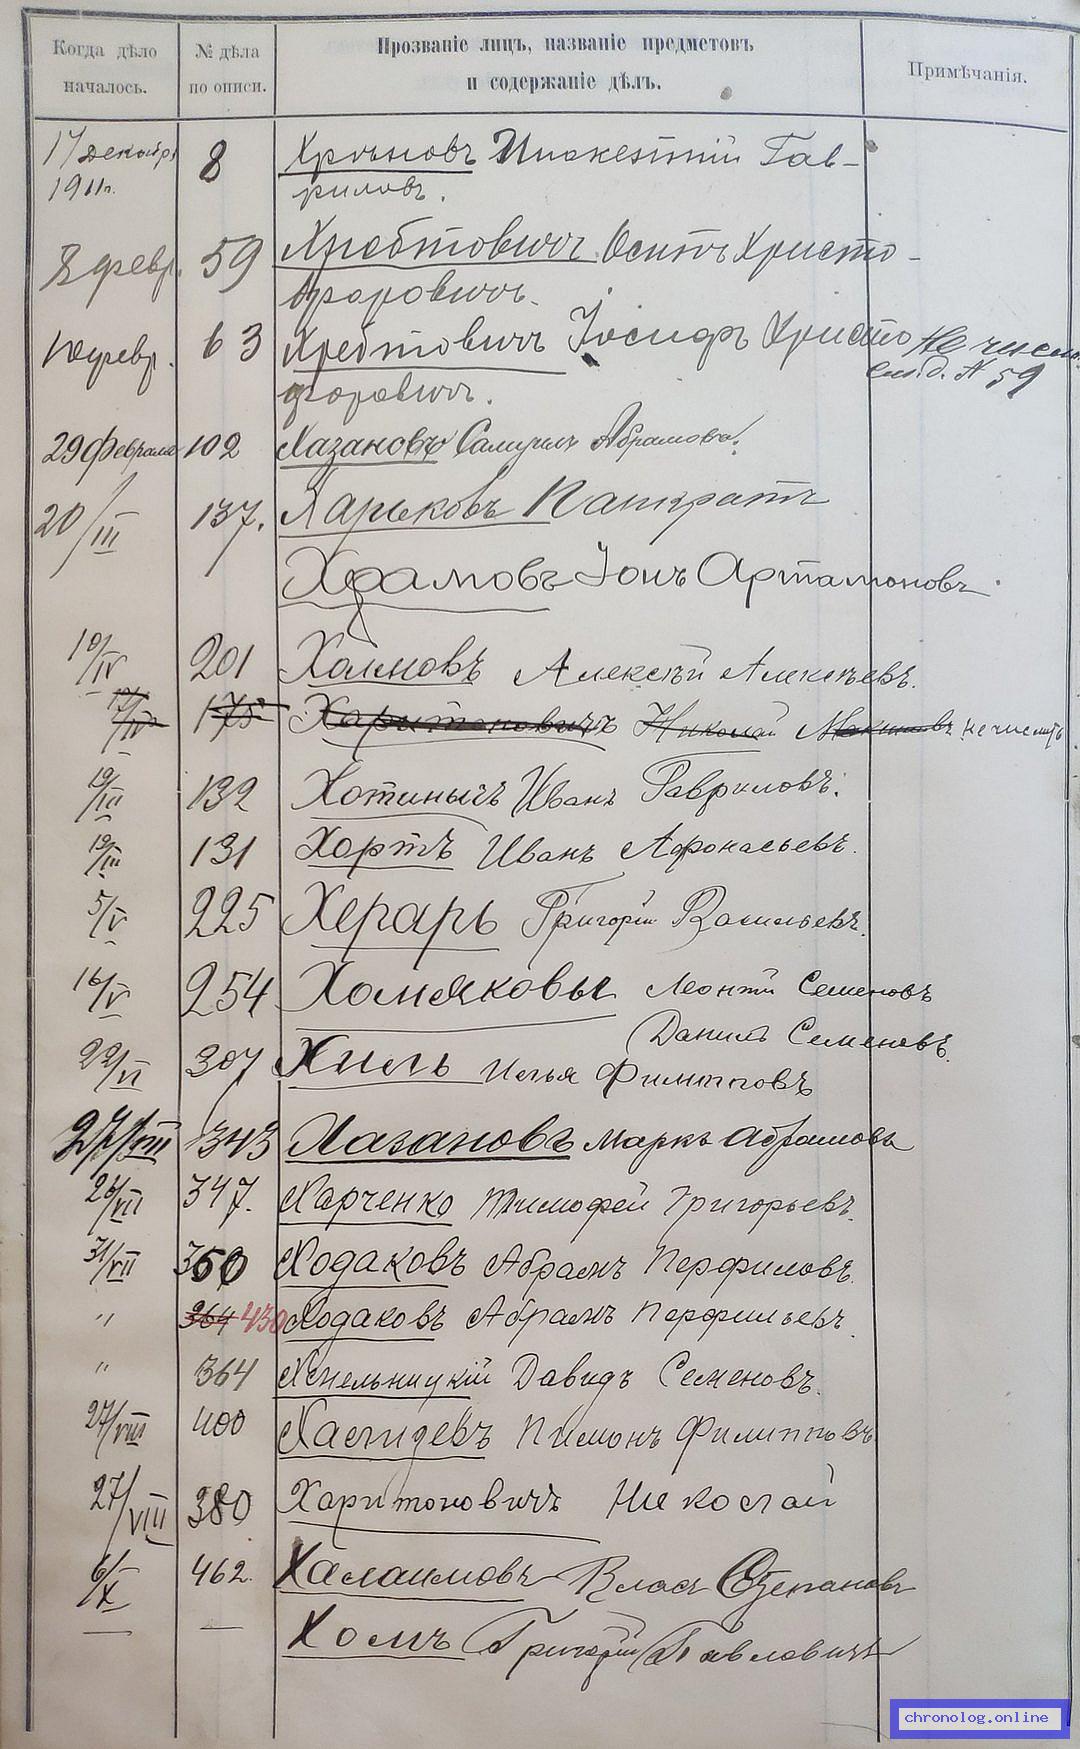 Когда дѣло началось.
№ дѣла по описи.
Прозваніе лицъ, названіе предметовъ
и содержаніе дѣлъ.
Примѣчанія.
17 декабр. 8 Гав-
1911 г. риловъ.
8 февр. 59 Хребтовичъ Осипъ Христо-
форовичъ.
10 февр. 63 Хребтовичъ Іосифъ Христо
форовичъ. см. д. № 59
29 Февраля 102 Хазановъ Самуилъ Абрамовъ.
20/III 137. Харьковъ Панкратъ
Храмовъ Іонъ Артамоновъ.
10/IV 201 Холмовъ Алексѣй Алексѣевъ.
17/IV 175 Харитоновичъ Николай не числить
19/III 132 Хотинычъ Иванъ Гавриловъ.
19/III 131 Хортъ Иванъ Афонасьевъ.
5/V 225 Херарь Григорій Васильевъ.
16/V 254 Хомяковы Леонтій Семеновъ
Данилъ Семеновъ.
22/VI 307 Хиль Илья Филипповъ
27/VIII 343 Хазановъ Маркъ Абрамовъ
26/VII 347. Харченко Тимофей Григорьевъ.
31/VII 350 Ходаковъ Абрамъ Перфиловъ.
" 364 430 Ходаковъ Абрамъ Перфильевъ.
" 364 Хмельницкій Давидъ Семеновъ.
27/VIII 400 Пимонъ Филипповъ
27/VIII 380 Харитоновичъ Николай
6/X 462. Халаимовъ Власъ Степановъ
— — Хомъ Григорій Павловичъ
chronolog.online